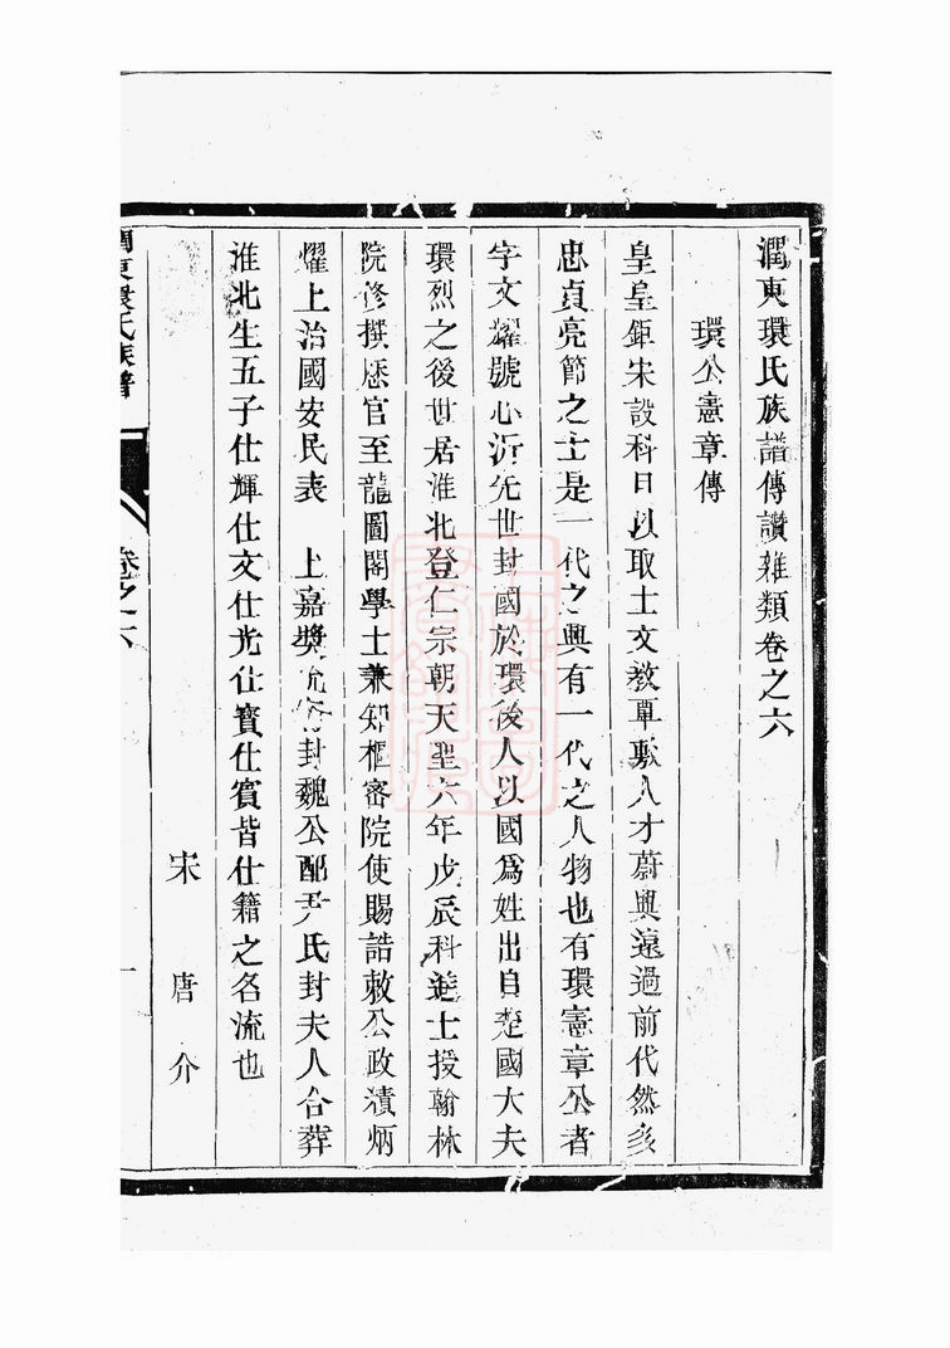 潤東環氏族譜傳讚雜類卷之六
環公憲章傳
皇皇鉅宋設科目以取士文教覃敷人才蔚興遠過前代然多
忠貞亮節之士是一代之興有一代之人物也有環憲章公者
字文耀號心沂先世封國於環後人以國爲姓出自楚國大夫
環烈之後世居淮北登仁宗朝天聖六年戊辰科進士授翰林
院修撰歷官至龍圖閣學士兼知樞密院使賜誥敕公政績炳
燿上治國安民表 上嘉獎 封魏公配尹氏封夫人合葬
淮北生五子仕輝仕文仕光仕寶仕賓皆仕籍之名流也
宋 唐 介
潤東環氏族譜 卷之六 一